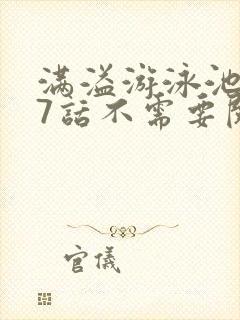 满溢游泳池
7話不需要
官儀